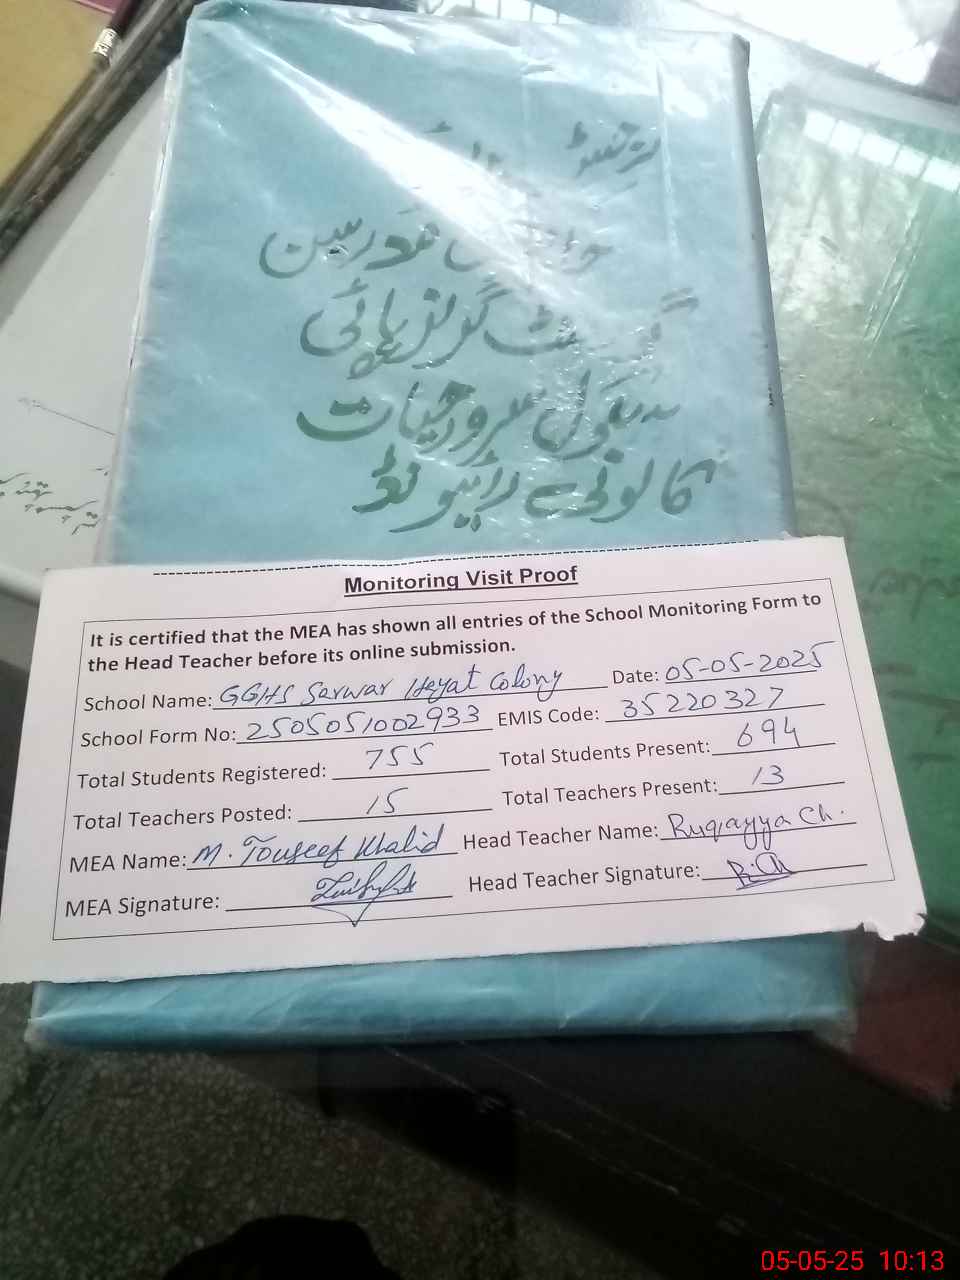 رجسٹر
مدرسین
گورنمنٹ گرلز ہائی
سکول سرور حیات
کالونی رائیونڈ
Monitoring Visit Proof
It is certified that the MEA has shown all entries of the School Monitoring Form to
the Head Teacher before its online submission.
School Name: GGHS Sarwar Heyat Colony Date: 05-05-2025
School Form No: 2505051002933 EMIS Code: 35220327
Total Students Registered: 755 Total Students Present: 694
Total Teachers Posted: 15 Total Teachers Present: 13
MEA Name: M. Touseef Khalid Head Teacher Name: Ruqayya Ch.
MEA Signature: Head Teacher Signature: R.Ch
05-05-25 10:13